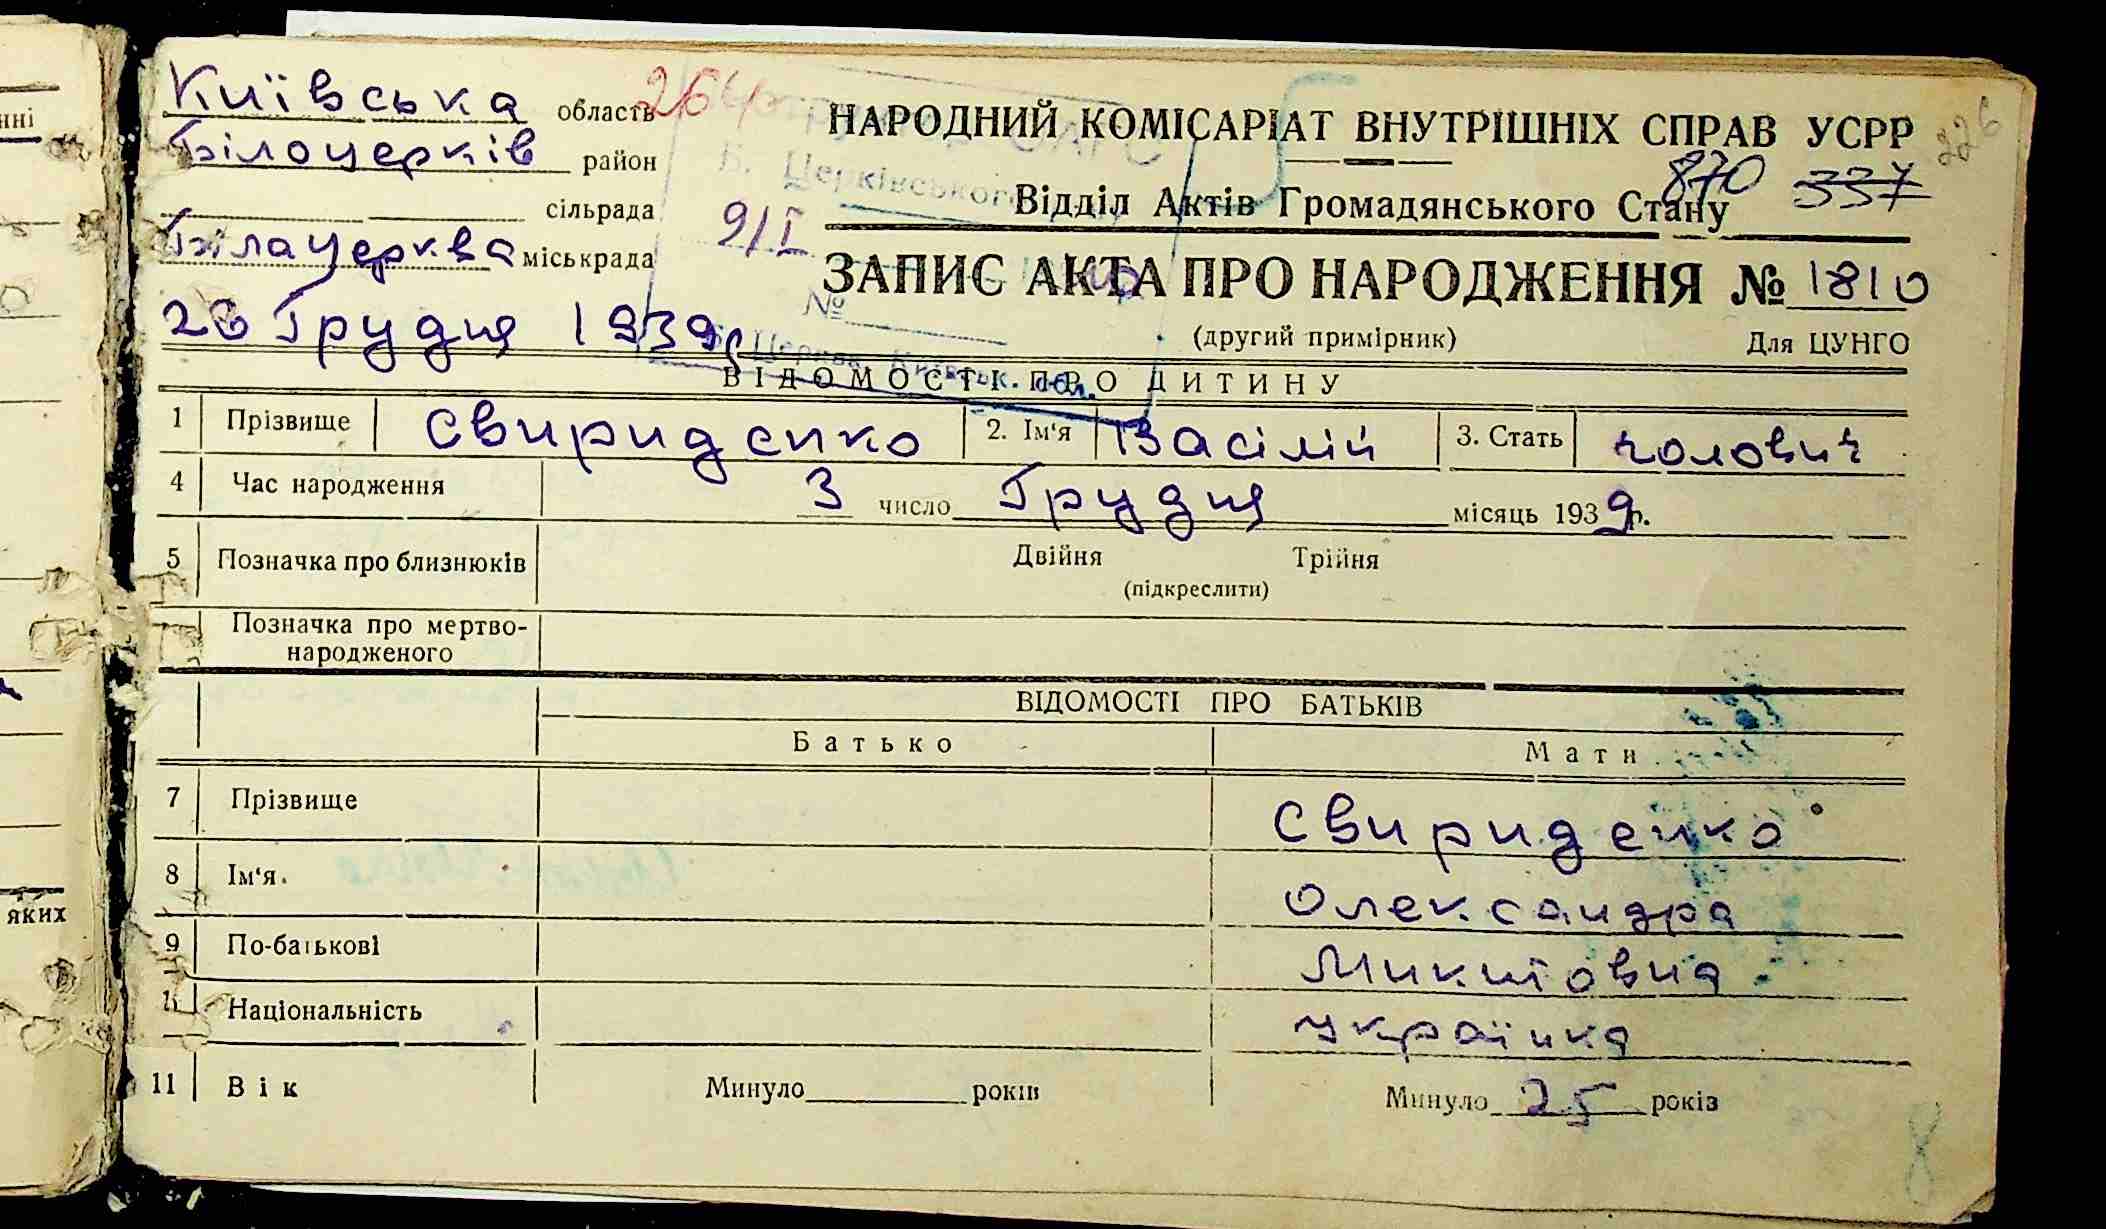 нні
яких
Київська область
264
Білоцерків район
сільрада
Білацерква міськрада
26 Грудня 1939р
Б. Церківського
9/I
№
НАРОДНИЙ КОМІСАРІАТ ВНУТРІШНІХ СПРАВ УСРР
226
870 337
Відділ Актів Громадянського Стану
ЗАПИС АКТА ПРО НАРОДЖЕННЯ № 1810
(другий примірник) Для ЦУНГО
ВІДОМОСТІ ПРО ДИТИНУ
1 Прізвище Свириденко 2. Ім'я Васілій 3. Стать чолович
4 Час народження 3 число Грудня місяць 1939р.
5 Позначка про близнюків Двійня Трійня
(підкреслити)
Позначка про мертво-
народженого
ВІДОМОСТІ ПРО БАТЬКІВ
Батько Мати
7 Прізвище Свириденко
8 Ім'я. Олександра
9 По-батькові Микитовна
Національність Українка
11 Вік Минуло років Минуло 25 років
8